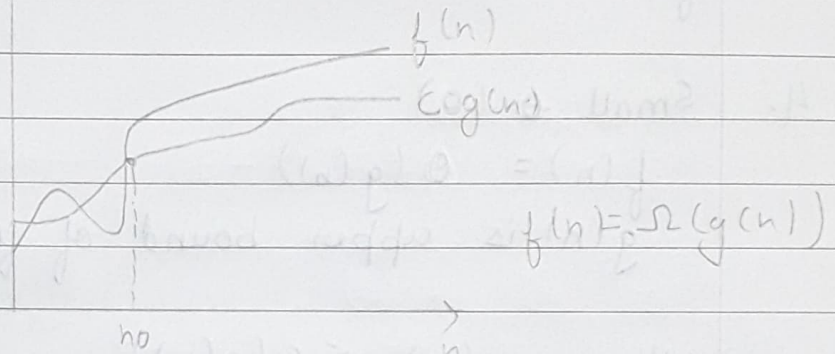 f(n)
c.g(n)
f(n) = Ω(g(n))
n0
n